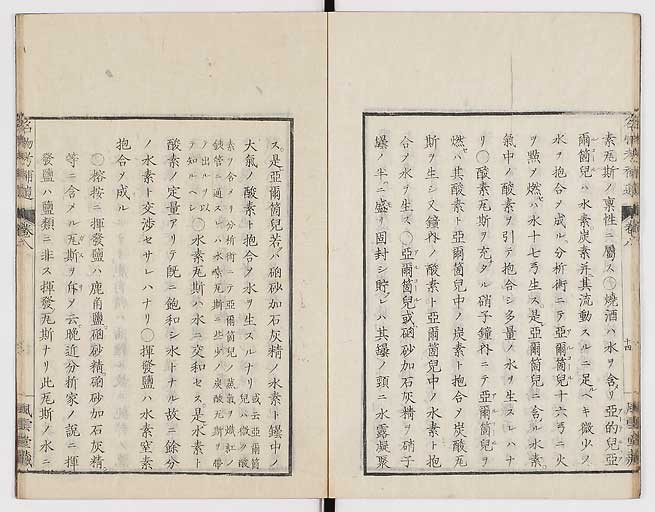 素瓦斯ノ稟性ニ屬ス〇燒酒ハ水ヲ含ミ亞的兒亞
爾箇兒ハ水素炭素幷其流動スルニ足ルベキ微少ノ
水ヲ抱合ノ成ル分析術ニテ亞爾箇兒十六弓ニ火
ヲ點ノ燃バ水十七弓生ス是亞爾箇兒ニ含ル水素
氣中ノ酸素ヲ引テ抱合シ多量ノ水ヲ生スレハナ
リ〇酸素瓦斯ヲ充タル硝子鐘內ニテ亞爾箇兒ヲ
燃ハ其酸素ト亞爾箇兒中ノ炭素ト抱合ノ炭酸瓦
斯ヲ生シ又鐘內ノ酸素ト亞爾箇兒中ノ水素ト抱
合ノ水ヲ生ス〇亞爾箇兒或硇砂加石灰精ヲ硝子
罎ノ半ニ盛リ固封シ貯レハ其罎ノ頸ニ水露凝聚
十四
名物考補遺 卷八
風雲堂藏
ス是亞爾箇兒若ハ硇砂加石灰精ノ水素ト罎中ノ
大氣ノ酸素ト抱合ノ水ヲ生スルナリ 或云亞爾箇兒ハ微ノ酸
素ヲ含メリ分析術ニテ亞爾箇兒ノ蒸氣ヲ熾紅ノ
銃管ニ通スレハ水素瓦斯ニ些少ノ炭酸瓦斯ヲ帶
ノ出ルヲ以テ知ルヘシ 〇水素瓦斯ハ水ニ交和セス是水素ト
酸素ノ定量アリテ旣ニ飽和シ水トナル故ニ餘分
ノ水素ト交涉セサレハナリ〇揮發鹽ハ水素窒素
抱合ノ成ル
〇榕按ニ揮發鹽ハ鹿角鹽硇砂精硇砂加石灰精
等ニ含メル瓦斯ヲ斥ノ云晚近分析家ノ說ニ揮
發鹽ハ鹽類ニ非ス揮發瓦斯ナリ此瓦斯ノ水ニ
名物考補遺 卷八
風雲堂藏